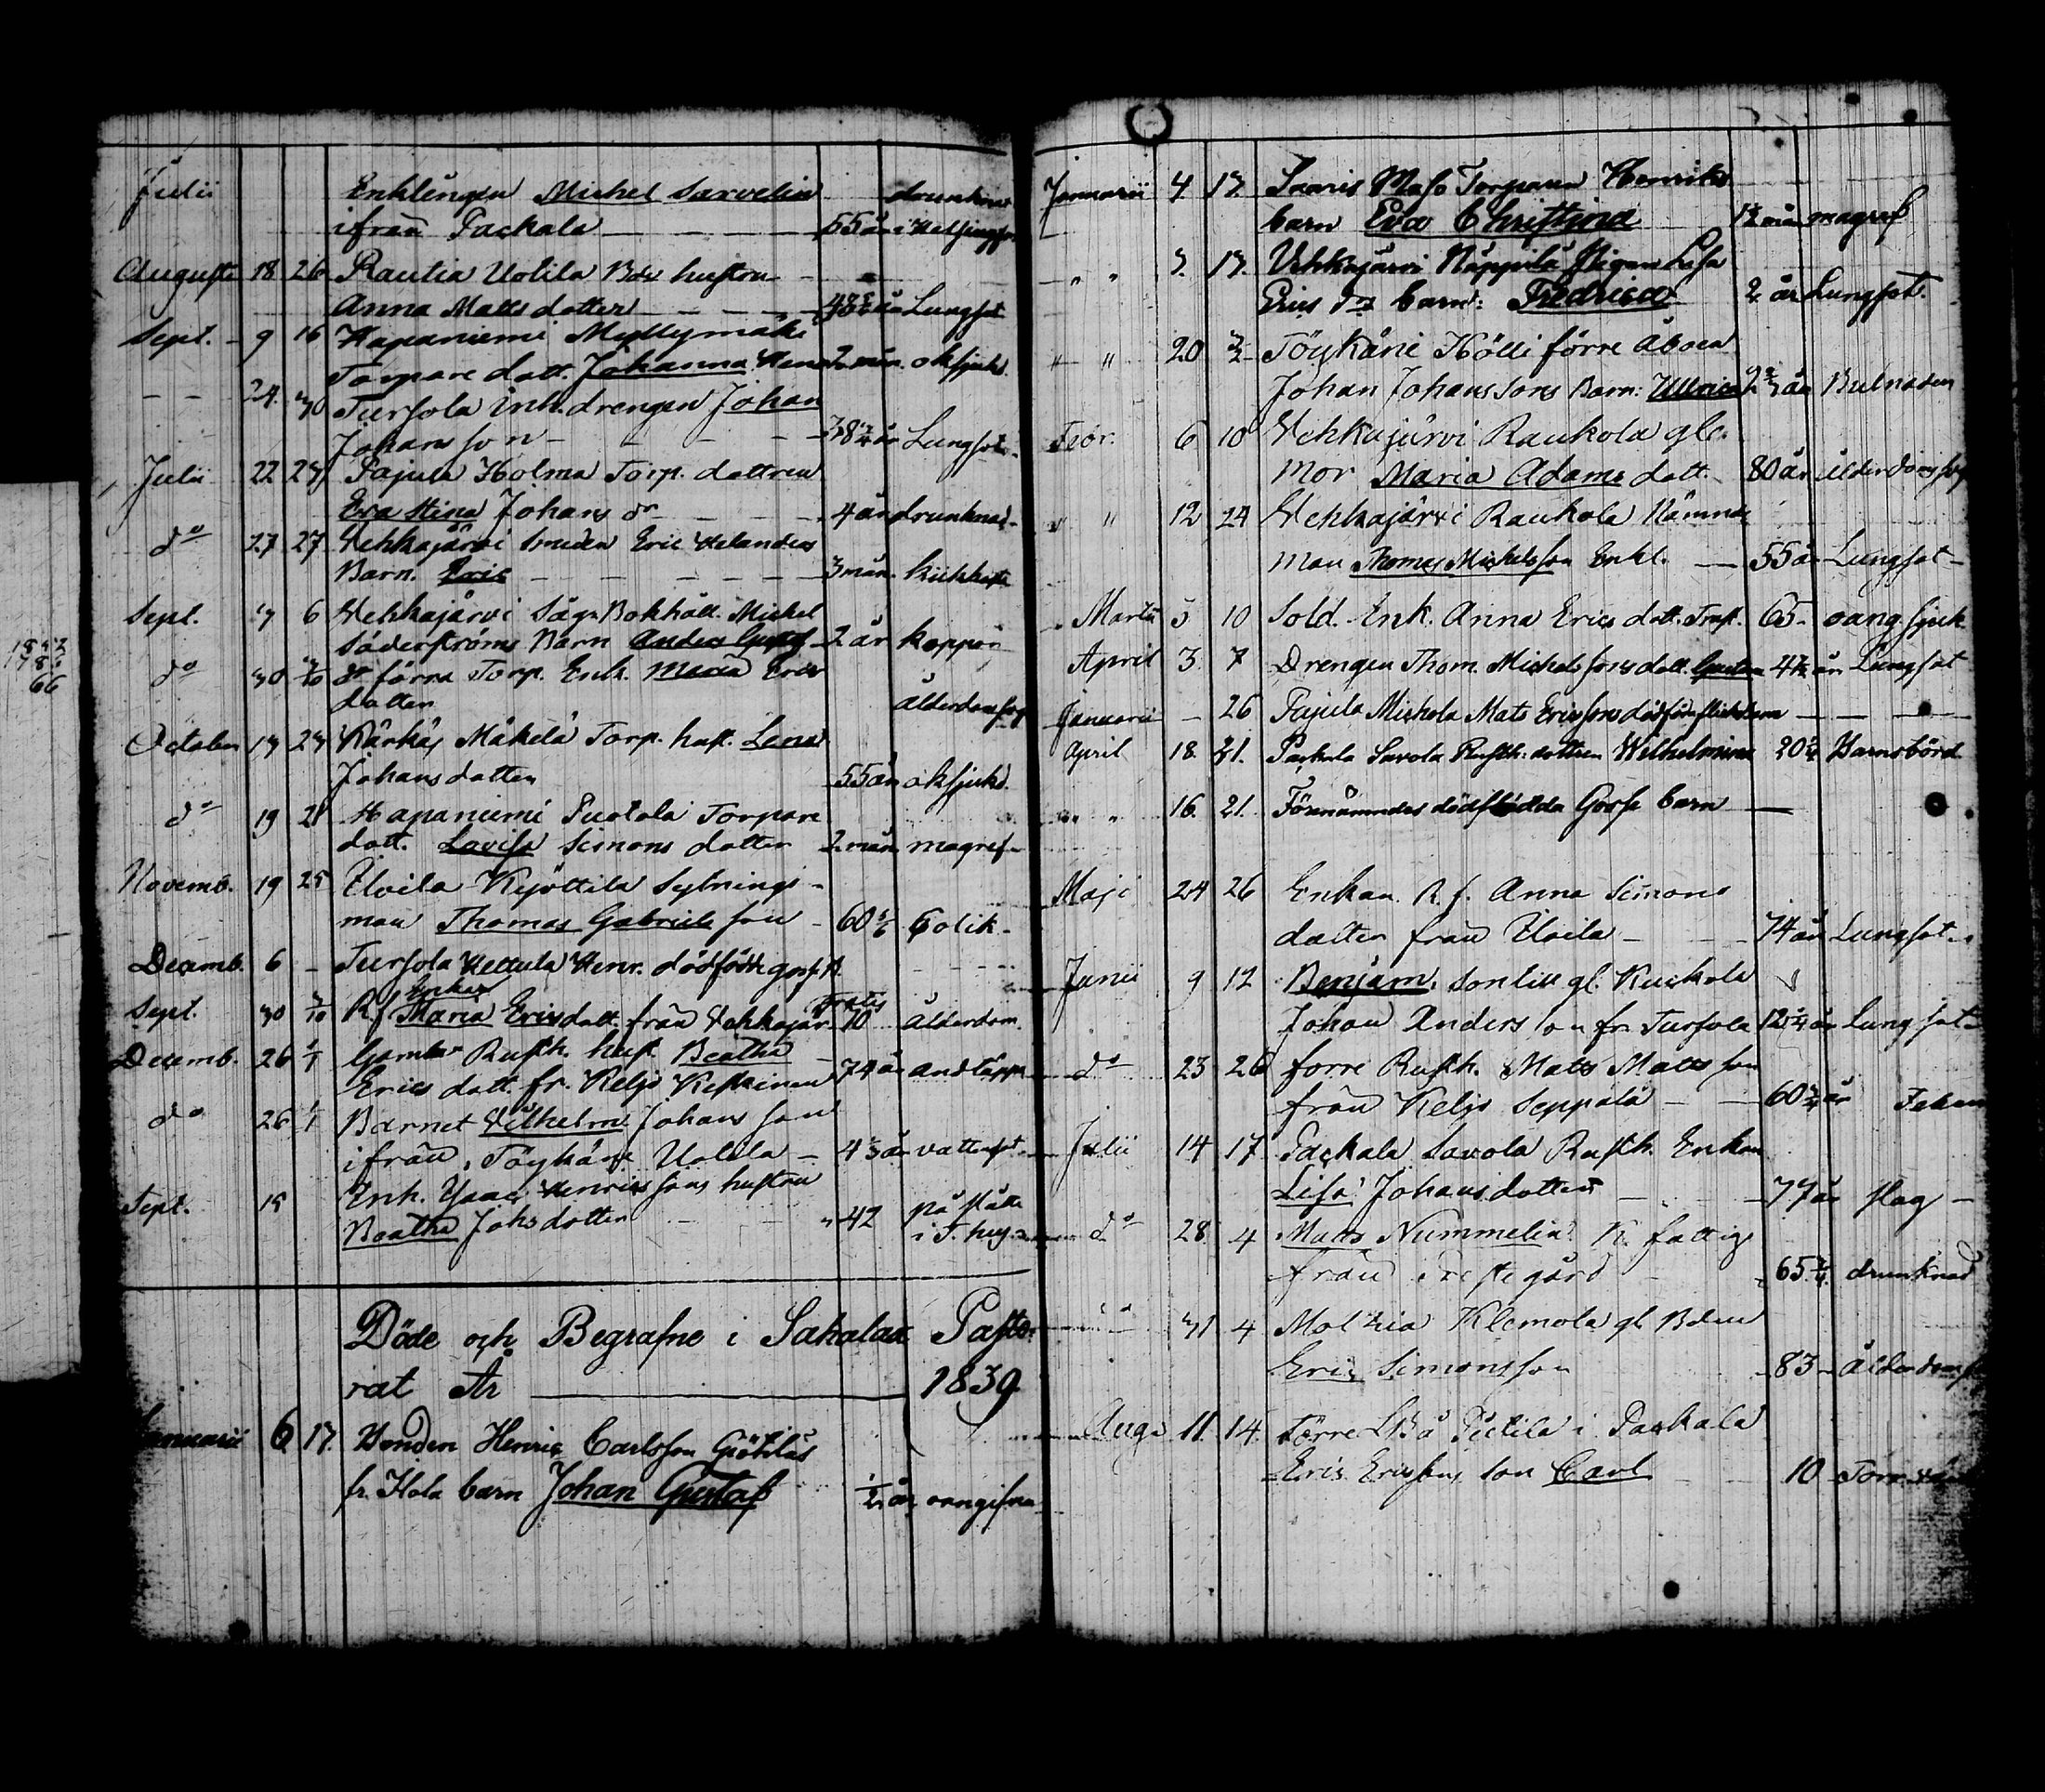 Julii Enklingen Michel Sarvelin drunknat
ifrån Packala — — — 55 år i Helsingfors
Augusti 18 26 Rautia Uotila Bde hustru
Anna Mattsdotter — — — år Lungsot
Sept. 9 16 Hapaniemi Myllymäki
Torpare dott. Johanna 2 mån. oksjukd.
24. 30 Tursola inh. drengen Johan
Johansson — — 38 år Lungsot
Julii 22 23 Pajula Holma Torp. dottren
Eva Stina Johans dr — — 4 år drunknad
do 27 27 Vehkajärvi Eric Helanders
Barn. Eric — — — 3 mån. kikhosta
Sept. 3 6 Vehkajärvi Sågs Bokhåll. Michel
Söderströms Barn Anders Gustaf 2 år koppor
do 30 3/10 do förra Torp. Enk. Maria Erics
dotter ålderdomssv
October 13 23 Kärkäs Mäkelä Torp. hust. Lena
Johansdotter 55 år oksjukd.
do 19 21 Hapaniemi Puotola Torpare
dott. Lovisa Simons dotter 2 mån magref
Novemb. 19 25 Uoila Kyöttilä Sytnings-
man Thomas Gabriels son 60 Colik
Decemb. 6 — Tursola Hettula Henr. dödfödde goss B.
Enkan
Sept. 30 3/10 R.f. Maria Ericsdott. från Vehkajär. 70 ålderdom
Decemb. 26 1/1 Gamla Rusth. hust. Beatha
Erics dott. fr. Keljo Keskinen 74 år andtäppa
do 26 1/1 Barnet Vilhelm Johans son
ifrån Töykäne Uotila — 4 år vattusot
Sept. 15 Enh. Isaac Henrics sons hustru
Beatha Johsdotter — — 42 på stället
i T. hus
Döde och Begrafne i Sahalax Pasto-
rat År — 1839
Januarii 6 13. Bonden Henric Carlsson
fr. Ilola barn Johan Gustaf 1/2 år oangifven
Januarii 4 13. Saaris Maso Torparen Henriks
barn Eva Christina 1 1/2 år magref
" " 7. 13. Vehkajärvi Näppilä Pigan Lisa
Erics dr barn: Fredrica 2 år Lungsot.
" " 20 3/2 Töykäne Hölli förre Åboen
Johan Johanssons Barn: Ulrica år Bulnaden
Febr. 6 10 Vehkajärvi Raukola gle.
mor Maria Adams dott. 80 år ålderdomssv
" " 12 24 Vehkajärvi Raukola Nämnde
man Thomas Michelsson Enkl. — 55 år Lungsot —
Martii 5 10 Sold. Enk. Anna Erics dott. 65 oang. sjuk.
April 3. 7 Drengen Thom. Michelssons dott. Gustava år Lungsot
Januarii — 26 Pajula Mickola Mats Erissons dödfödde flickebarn — — —
April 18. 21. Packala Savola Rusth. dottren Wilhelmina 20 Barnsbörd
" " 16. 21. Förenämndes dödfödda Gosse barn —
Maji 24 26 Enkan R.f. Anna Simons
dotter från Uoila — — 74 år Lungsot.
Junii 9 12 Benjam. son till gl. Kuckola
Johan Anders son fr. Tursola 12 1/4 år Lungsot
do 23 26 förre Rusth. Matts Matts son
från Keljo Seppälä — — 60 3/4 år
Julii 14 17 Packala Savola Rusth. Enkan
Lisa Johans dotter — — 77 år slag —
do 28. 4 Matts Nummelin K. fattig
från Prestegård — 65 drunknad
do 31 4 Moltzia Klemola gl. Bden
Eric Simonsson 83 ålderdomssv
Aug. 11. 14. förre Bå Putila i Packala
Eric Ericssons son Carl — 10